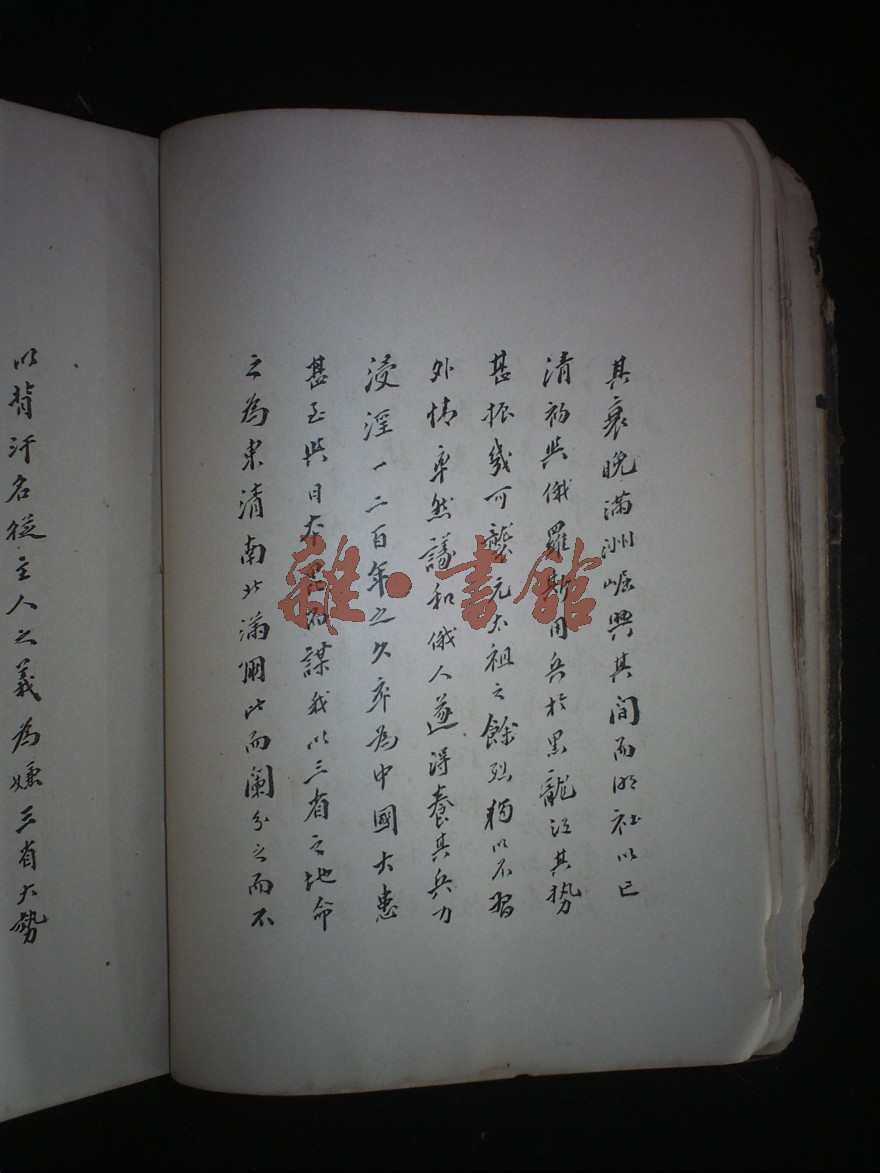 其衰晚滿洲崛興其間而明社以亡
清初與俄羅斯用兵於黑龍江其勢
甚振幾可襲元太祖之餘烈獨以不習
外情率然議和俄人遂得養其兵力
浸淫一二百年之久卒為中國大患
甚至與日本 謀我以三省之地命
之為東清南北滿 此而闌分之而不
以背汗名從主人之義為嫌三省大勢
雜·書館